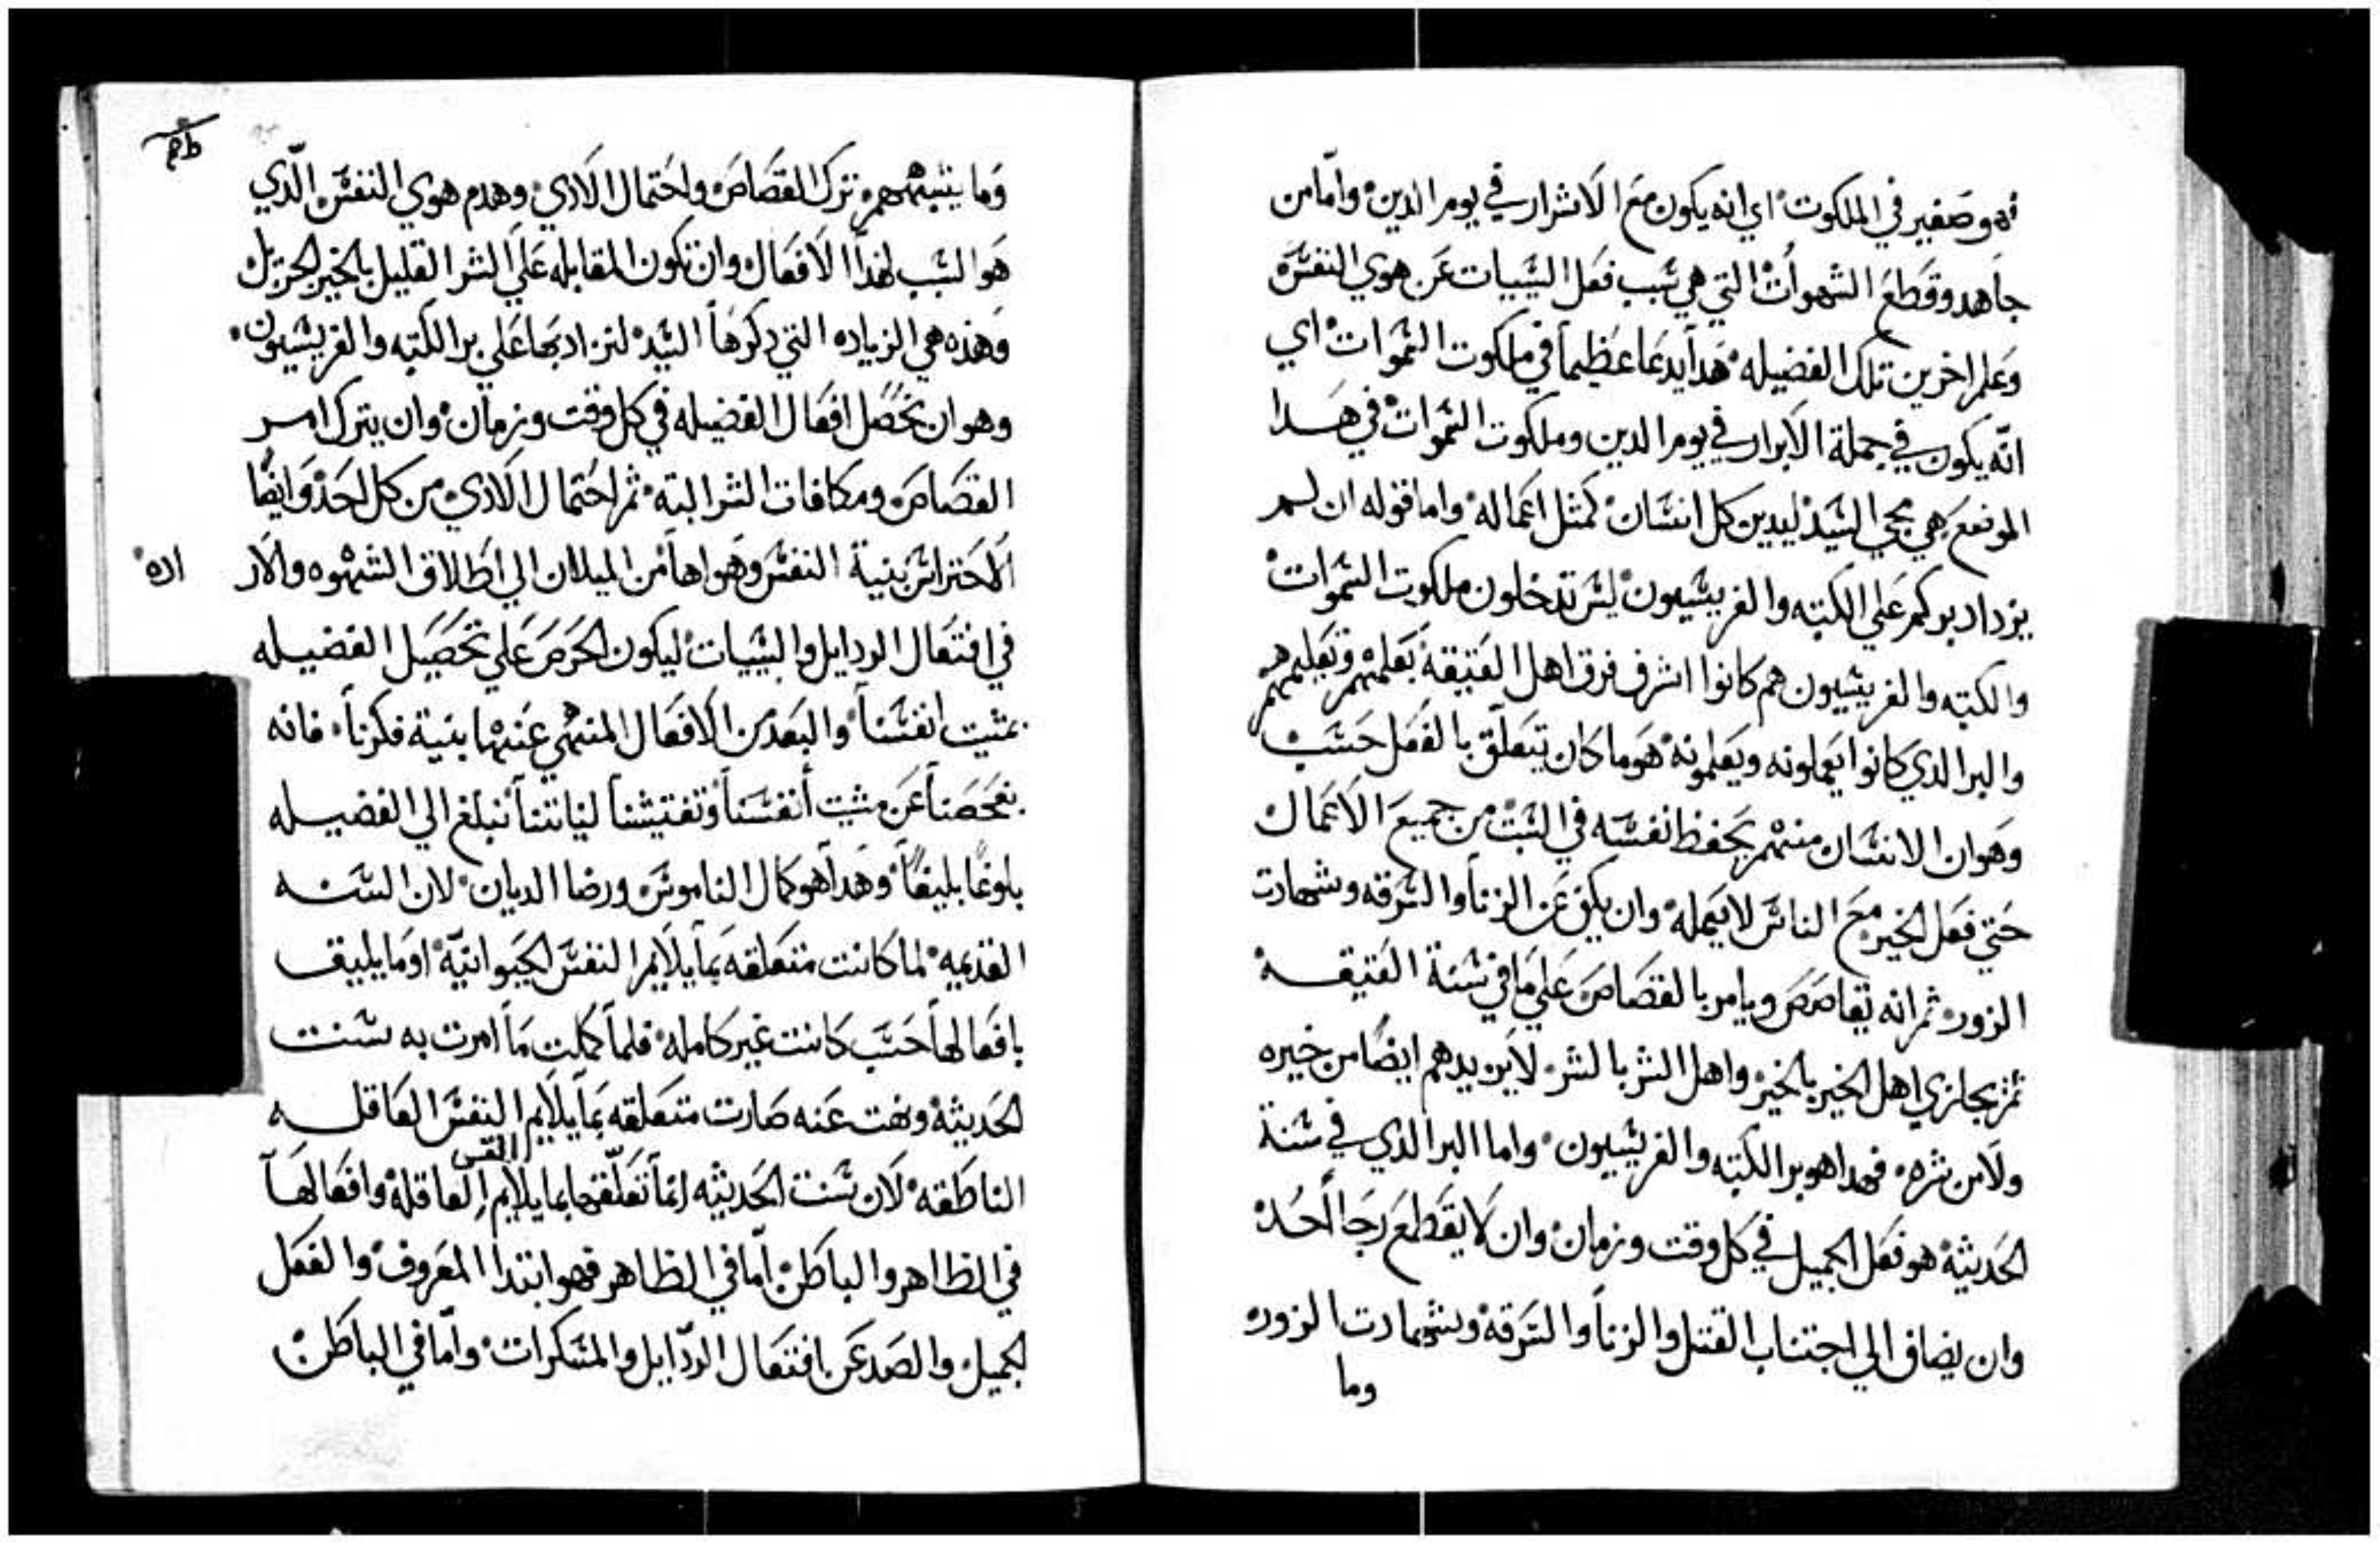 فهو صغير في الملكوت اي انه يكون مع الاشرار في يوم الدين واما من
جاهد وقطع الشهوات التي هي سبب فعل السييات عن هوي النفس
وعلم اخرين تلك الفضيله هدا يدعا عظيما في ملكوت السموات اي
انه يكون في جملة الابرار في يوم الدين وملكوت السموات في هدا
الموضع هي مجي السيد ليدين كل انسان كمثل اعماله واما قوله ان لم
يزداد بركم علي الكتبه والفريسيون ليس تدخلون ملكوت السموات
والكتبه والفريسيون هم كانوا اشرف فرق اهل العتيقه بعلمهم وتعليمهم
والبر الدي كانوا يعملونه ويعلمونه هو ما كان يتعلق بالفعل حسب
وهو ان الانسان منهم يحفظ نفسه في السبت من جميع الاعمال
حتي فعل الخير مع الناس لا يعمله وان يكف عن الزنا والسرقه وشهادت
الزور ثم انه يقاصص ويامر بالقصاص علي ما في سنة العتيقه
ثم يجازي اهل الخير بالخير واهل الشر بالشر لا يزيدهم ايضا من خيره
ولا من شره فهدا هو بر الكتبه والفريسيون واما البر الذي في سنة
الحديثة هو فعل الجميل في كل وقت وزمان وان لا يقطع رجا احد
وان يضاف الي اجتناب القتل والزنا والسرقه وشهادت الزور
وما
وما يشبههم ترك القصاص واحتمال الادي وهدم هوي النفس الدي
هو السبب لهدا الافعال وان تكون المقابله علي الشر القليل بالخير الجزيل
وهذه هي الزياده التي دكرها السيد لنزاد بها علي بر الكتبه والفريسيون
وهو ان نحصل افعال الفضيله في كل وقت وزمان وان يترك امر
القصاص ومكافات الشر البته ثم احتمال الادي من كل احد وايضا
الاحتراس بنية النفس وهواها من الميلان الي اطلاق الشهوه والار
اده
في افتعال الردايل والسييات ليكون الحرص علي تحصيل الفضيله
بمشيت انفسنا والبعد من الافعال المنهي عنها بنية فكرنا فانه
بفحصنا عن مشيت أنفسنا وتفتيشنا لنياتنا نبلغ الي الفضيله
بلوغا بليغا وهدا هو كمال الناموس ورضا الديان لان السنه
القديمه لما كانت متعلقه بما يلايم النفس الحيوانية او ما يليق
بافعالها حسب كانت غير كامله فلما كملت ما امرت به سنت
الحديثة ونهت عنه صارت متعلقه بما يلايم النفس العاقله
الناطقه لان سنت الحديثه انما تعلقها بما يلايم العاقلة وافعالها
في الظاهر والباطن اما في الظاهر فهو ابتدا المعروف والفعل
الجميل والصد عن افتعال الردايل والمنكرات واما في الباطن